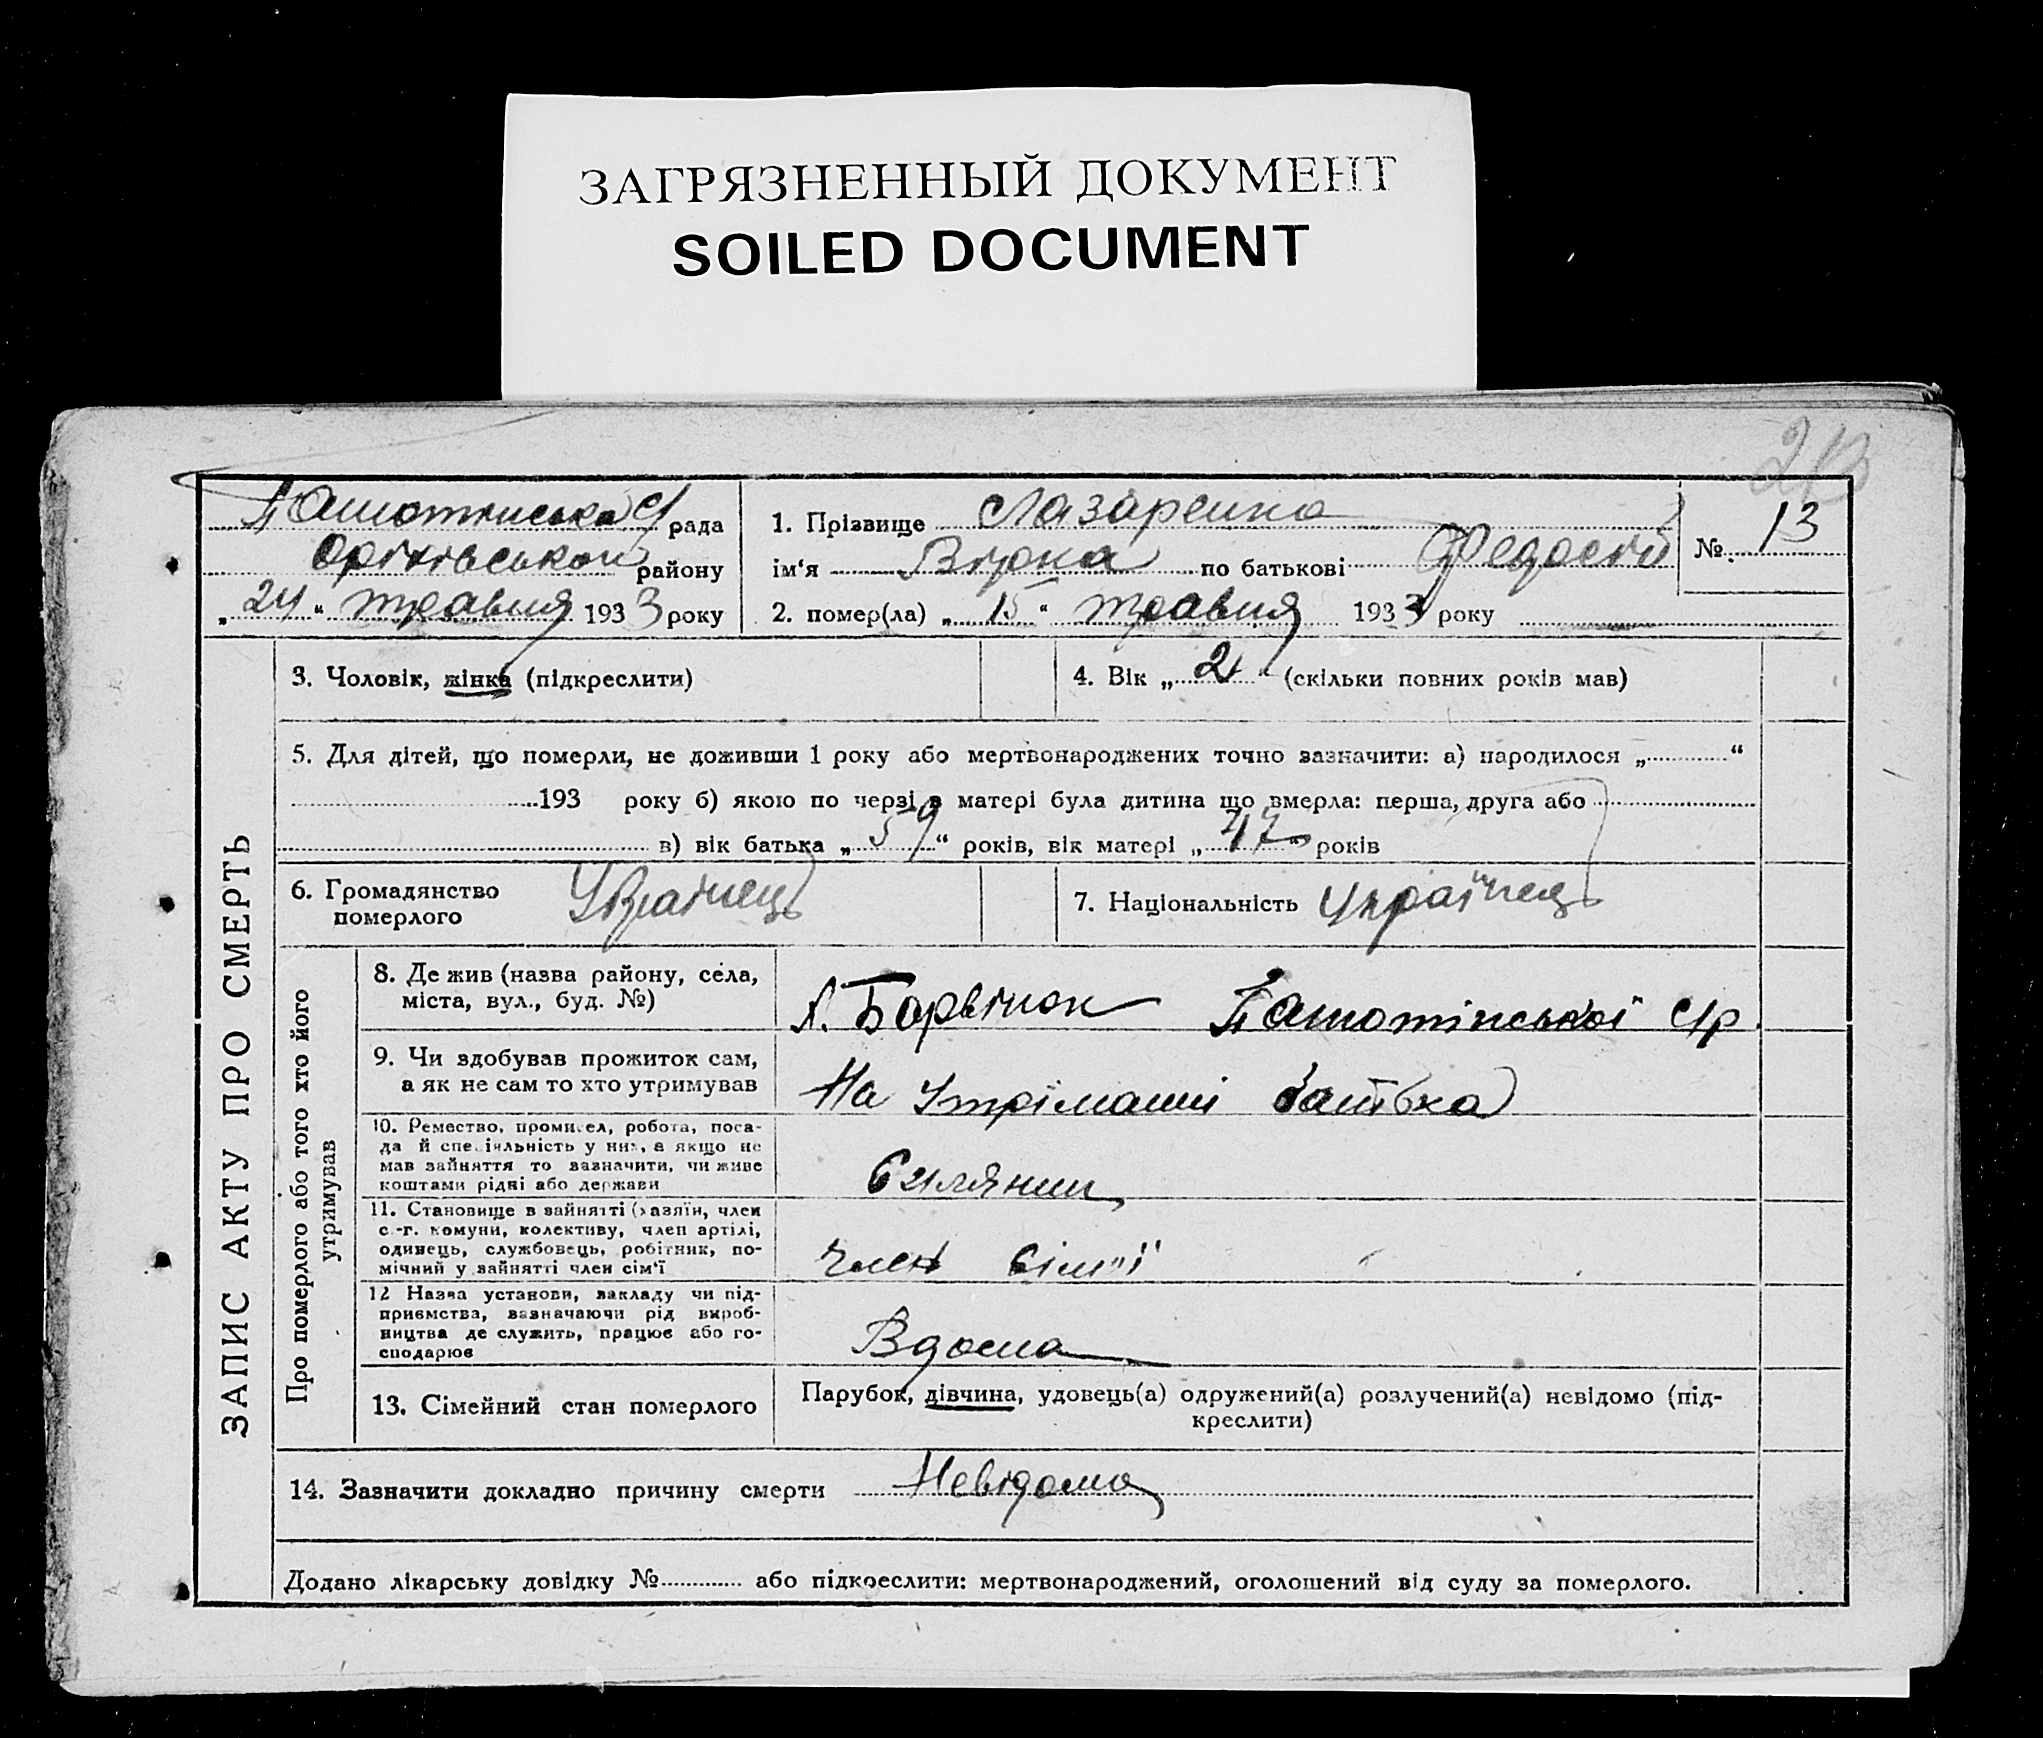 ЗАГРЯЗНЕННЫЙ ДОКУМЕНТ
SOILED DOCUMENT
рада
Оріхівськой району
„24“ травня 1933 року
1. Прізвище Лазаренко
ім‘я Вірка по батькові Федосій
2. помер(ла) „15“ травня 1933 року
№ 13
ЗАПИС АКТУ ПРО СМЕРТЬ
3. Чоловік, жінка (підкреслити)
4. Вік „2“ (скільки повних років мав)
5. Для дітей, що померли, не доживши 1 року або мертвонароджених точно зазначити: а) народилося „ “
193 року б) якою по черзі в матері була дитина що вмерла: перша, друга або
в) вік батька „59“ років, вік матері „47“ років
6. Громадянство
померлого
Українець
7. Національність Українець
Про померлого або того хто його
утримував
8. Де жив (назва району, села,
міста, вул., буд. №)
х. Барвінок с/р
9. Чи здобував прожиток сам,
а як не сам то хто утримував
На утріманні батька
10. Ремество, промисел, робота, поса-
да й спеціяльність у них, а якщо не
мав зайняття то зазначити, чи живе
коштами рідні або держави
Силянин
11. Становище в зайнятті (хазяїн, член
с.-г. комуни, колективу, член артілі,
одинець, службовець, робітник, по-
мічний у зайнятті член сім‘ї
член сім"ї
12 Назва установи, закладу чи під-
приємства, вазначаючи рід вироб-
ництва де служить, працює або го-
сподарює
Вдома
13. Сімейний стан померлого
Парубок, дівчина, удовець(а) одружений(а) розлучений(а) невідомо (під-
креслити)
14. Зазначити докладно причину смерти Невідома
Додано лікарську довідку № або підкреслити: мертвонароджений, оголошений від суду за померлого.